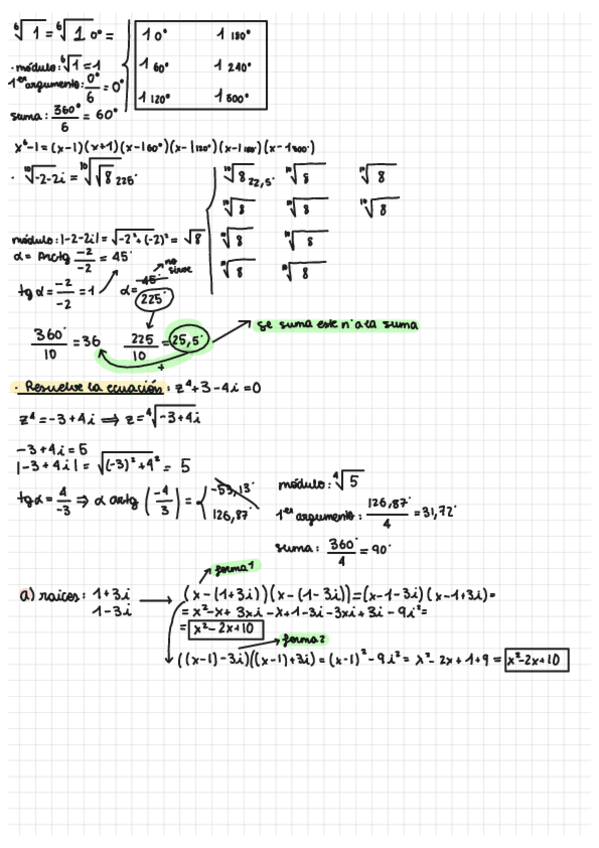 ⁶√1 = ⁶√1 0° = 1 0° 1 180°
1 60° 1 240°
1 120° 1 300°
· módulo: ⁶√1 = 1
1er argumento: 0°/6 = 0°
suma: 360°/6 = 60°
x⁶-1 = (x-1)(x+1)(x-1 60°)(x-1 120°)(x-1 180°)(x-1 300°)
· ¹⁰√-2-2i = ¹⁰√√8 225° ¹⁰√8 22,5° ¹⁰√8 ¹⁰√8
¹⁰√8 ¹⁰√8 ¹⁰√8
¹⁰√8 ¹⁰√8
¹⁰√8 ¹⁰√8
módulo: |-2-2i| = √-2²+(-2)² = √8
α = Arctg -2/-2 = 45°
no sirve
tg α = -2/-2 = 1 α = 45° 225°
360°/10 = 36 225/10 = 25,5° +
se suma este nº a la suma
· Resuelve la ecuación: z⁴+3-4i=0
z⁴ = -3+4i ⇒ z = ⁴√-3+4i
-3+4i = 5
|-3+4i| = √(-3)²+4² = 5
tg α = 4/-3 ⇒ α artg (-4/3) = -53,13° 126,87°
módulo: ⁴√5
1er argumento: 126,87°/4 = 31,72°
suma: 360°/4 = 90°
forma 1
a) raíces: 1+3i → (x-(1+3i))(x-(1-3i)) = (x-1-3i)(x-1+3i) =
1-3i = x²-x+3xi-x+1-3i-3xi+3i-9i² =
= x²-2x+10
forma 2
((x-1)-3i)((x-1)+3i) = (x-1)²-9i² = x²-2x+1+9 = x²-2x+10